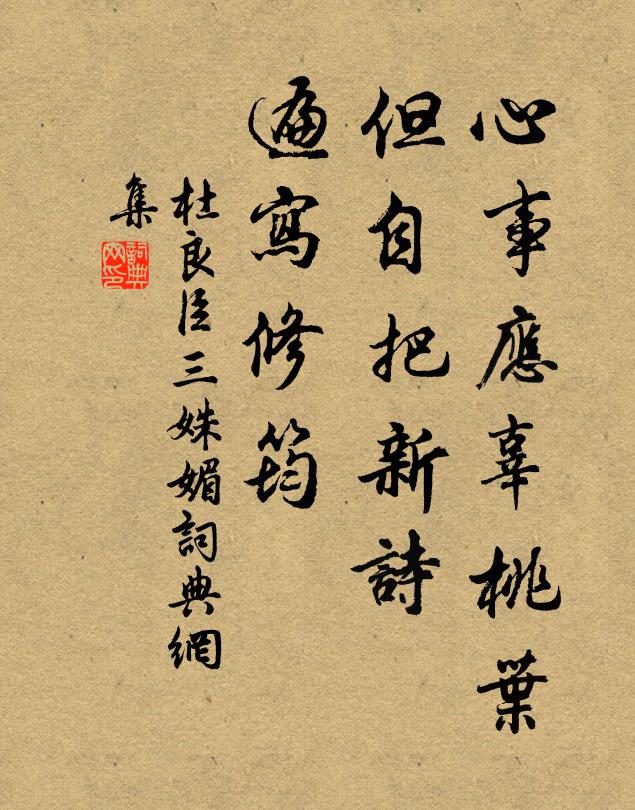 心事應辜桃葉
但自把新詩
遍寫修筠
杜良臣三姝媚詞典網
集
詞典
网印